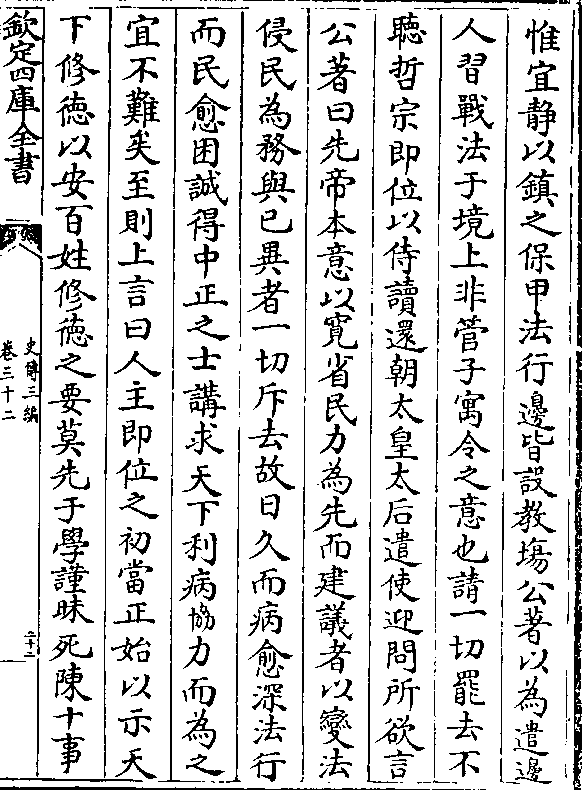 惟宜静以鎮之保甲法行邊皆設教塲公著以為遣邊
人習戰法于境上非管子寓令之意也請一切罷去不
聽哲宗即位以侍讀還朝太皇太后遣使迎問所欲言
公著曰先帝本意以寛省民力為先而建議者以變法
侵民為務與已異者一切斥去故日久而病愈深法行
而民愈困誠得中正之士講求天下利病協力而為之
宜不難矣至則上言曰人主即位之初當正始以示天
下修徳以安百姓修徳之要莫先于學謹昧死陳十事
欽定四庫全書
史傳三編
卷三十二
二十二